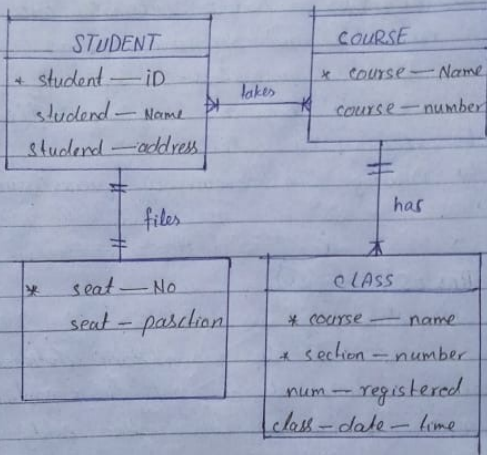 STUDENT
* student — iD
studend — Name
Studend — address
takes
COURSE
* course — Name
course — number
files
has
* seat — No
seat — pasction
CLASS
* course — name
* section — number
num — registered
class — date — time